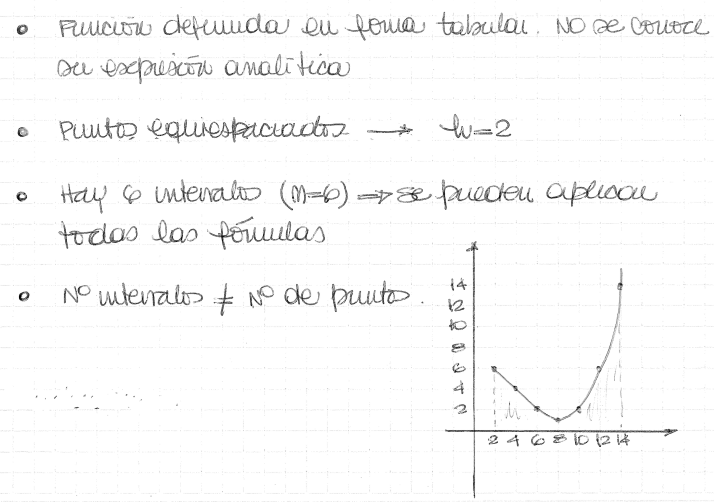 • Función definida en forma tabular. NO se conoce
su expresión analítica
• Puntos equiespaciados → h=2
• Hay 6 intervalos (n=6) ⇒ se pueden aplicar
todas las fórmulas
• Nº intervalos ≠ Nº de puntos.
14
12
10
8
6
4
2
h
2 4 6 8 10 12 14